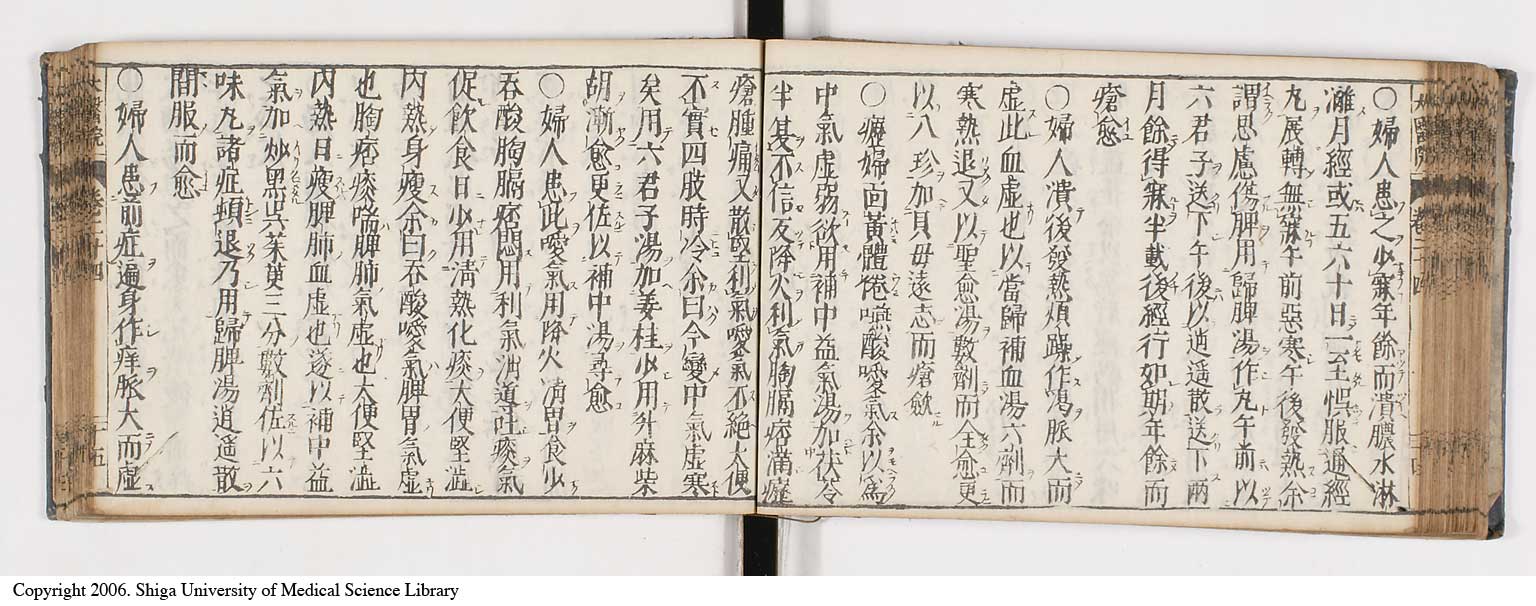 〇婦人患之少寐年餘而潰膿水淋
漓月經或五六十日一至悞服通經
丸展轉無寐午前惡寒午後發熱余
謂思慮傷脾用歸脾湯作丸午前以
六君子送下午後以逍遥散送下兩
月餘得寐半載後經行如期年餘而
瘡愈
〇婦人潰後發熱煩躁作渴脈大而
虚此血虚也以當歸補血湯六劑而
寒熱退又以聖愈湯數劑而全愈更
以八珍加貝母遠志而瘡斂
〇孀婦面黃體倦嚥酸噯氣余以爲
中氣虚弱欲用補中益氣湯加茯苓
半夏不信反降火利氣胸膈痞滿
瘡腫痛又散堅利氣噯氣不絶大便
不實四肢時冷余曰今變中氣虚寒
矣用六君子湯加姜桂少用升麻柴
胡漸愈更佐以補中湯尋愈
〇婦人患此噯氣用降火清胃食少
吞酸胸膈痞悶用利氣消道吐痰氣
促飲食日少用清熱化痰大便堅澁
內熱身瘦余曰吞酸噯氣脾胃氣虚
也胸痞痰喘脾肺氣虚也大便堅澁
內熱日瘦脾肺血虚也遂以補中益
氣加炒黑吳茱萸三分數劑佐以六
味丸諸症頓退乃用歸脾湯逍遥散
間服而愈
〇婦人患前症遍身作痒脈大而虚
卷二十四